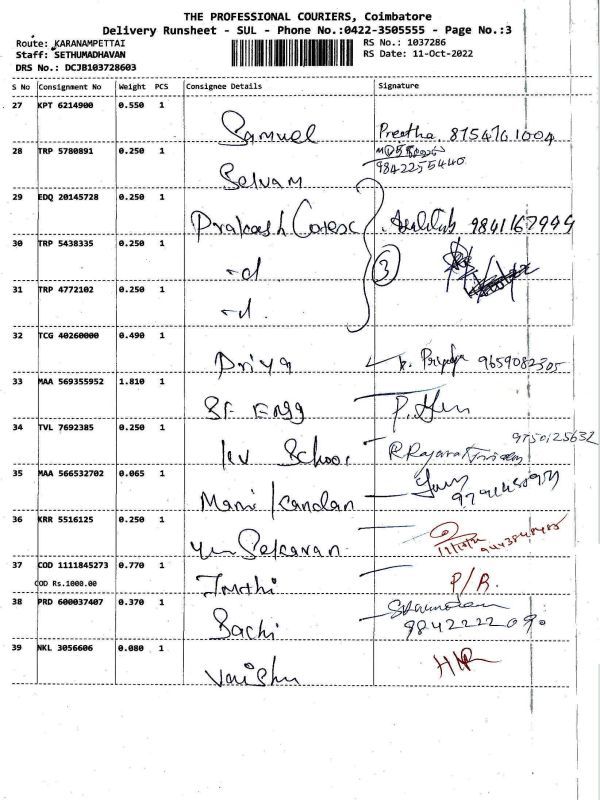 THE PROFESSIONAL COURIERS, Coimbatore
Delivery Runsheet - SUL - Phone No.:0422-3505555 - Page No.:3
Route: KARANAMPETTAI RS No.: 1037286
Staff: SETHUMADHAVAN RS Date: 11-Oct-2022
DRS No.: DCJB103728603
S No Consignment No Weight PCS Consignee Details Signature
27 KPT 6214900 0.550 1
Samuel Preetha 8754761004
28 TRP 5780891 0.250 1
9842255440
Selvam
29 EDQ 20145728 0.250 1
Prakash 9841167999
30 TRP 5438335 0.250 1
-d 3
31 TRP 4772102 0.250 1
-d.
32 TCG 40260000 0.490 1
Priya Priya 9659082305
33 MAA 569355952 1.810 1
SF Engg
34 TVL 7692385 0.250 1
9750125632
School
35 MAA 566532702 0.065 1
Manikandan
36 KRR 5516125 0.250 1
37 COD 1111845273 0.770 1
COD Rs.1000.00 P/R.
38 PRD 600037407 0.370 1
Sachi
39 NKL 3056606 0.080 1
Vaishu